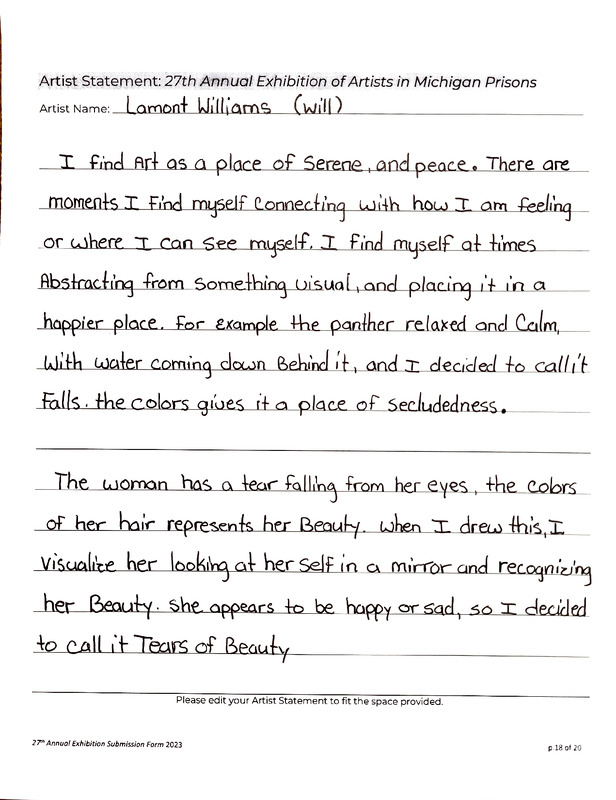 Artist Statement: 27th Annual Exhibition of Artists in Michigan Prisons
Artist Name: Lamont Williams (Will)
I find Art as a place of Serene, and peace. There are
moments I find myself Connecting with how I am feeling
or where I can see myself. I find myself at times
Abstracting from something visual, and placing it in a
happier place. For example the panther relaxed and Calm,
With water coming down Behind it, and I decided to call it
Falls. the colors gives it a place of secludedness.
The woman has a tear falling from her eyes, the colors
of her hair represents her Beauty. When I drew this, I
visualize her looking at her self in a mirror and recognizing
her Beauty. She appears to be happy or sad, so I decided
to call it Tears of Beauty
Please edit your Artist Statement to fit the space provided.
27th Annual Exhibition Submission Form 2023
p.18 of 20